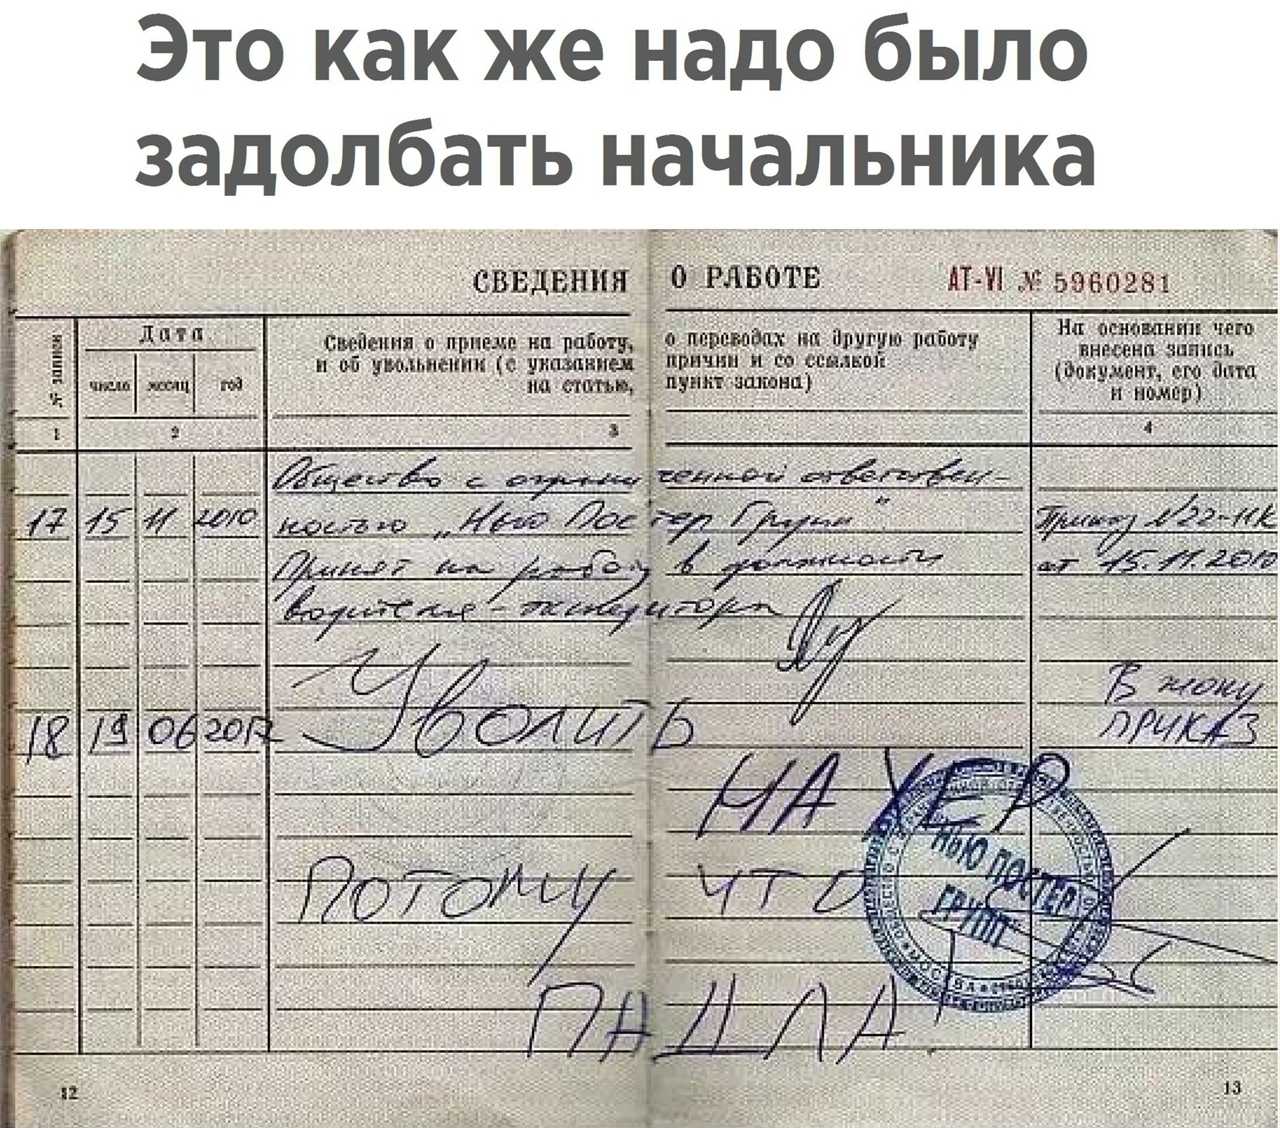 Это как же надо было
задолбать начальника
СВЕДЕНИЯ О РАБОТЕ АТ-VI № 5960281
№ записи
Дата
число месяц год
Сведения о приеме на работу, о переводах на другую работу
и об увольнении (с указанием причин и со ссылкой
на статью, пункт закона)
На основании чего
внесена запись
(документ, его дата
и номер)
1 2 3 4
Общество с ограниченной ответствен-
17 15 11 2010 ностью „Нью Постер Групп" Приказ №22-НК
Принят на работу в должности от 15.11.2010
водителя-экспедитора
В жопу
18 19 06 2017 Уволить ПРИКАЗ
НАХЕР
ПОТОМУ ЧТО
ПАДЛА
НЬЮ ПОСТЕР
ГРУПП
МОСКВА
12 13